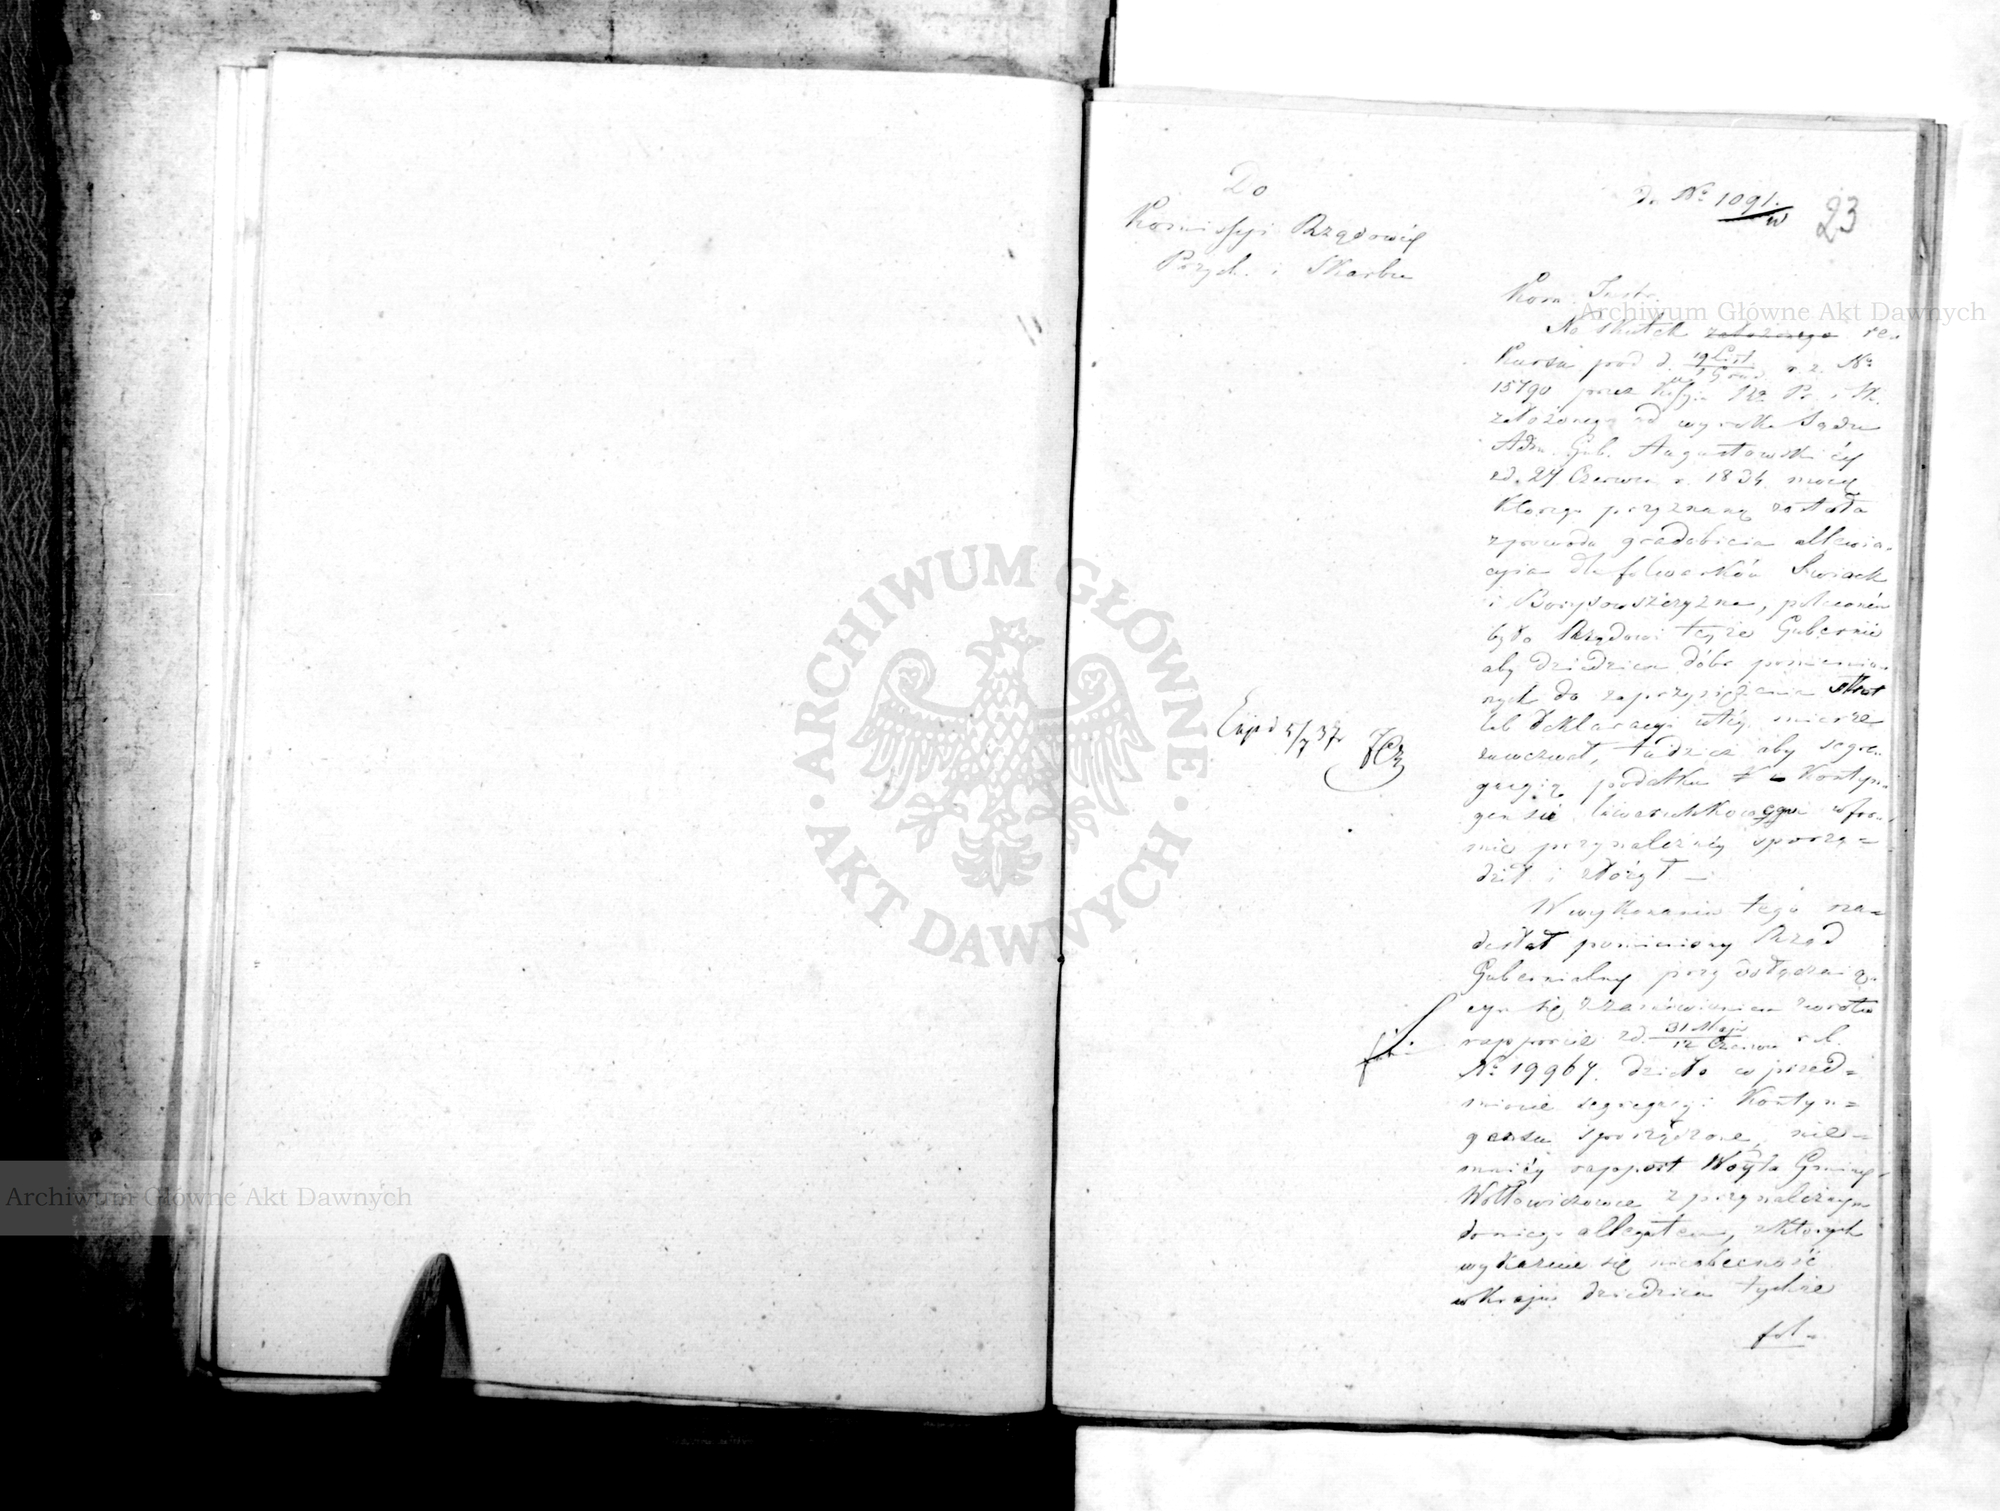 Do
Kommissyi Rządowéy
Przych. i Skarbu
do Nº 1091.
w
23
Kom. Instr.
Na skutek założonego re-
kursu pod d. 19 List. / 1 Grud. r. z. Nº
15790 przez Kssyą Rz. Pr. i Sk.
założonego od wyroku Sądu
Adm. Gub. Augustowskiéy
z d. 27 Czerwca r. 1834. mocą
którego przyznaną została
z powodu gradobicia allewia-
cyia dla folwarków Swiack
i Borysowszczyzna, polecono
było Rządowi teyże Gubernii
aby dziedzica dóbr pomienio-
nych do zaprzysiężenia strat
lub deklaracyi w téy mierze
zawezwał, tudzież aby segre-
gacyią podatku kontyn-
gensu liwerunkowego w for-
mie przynależnéy sporzą-
dził i złożył —
W wykonaniu tego na-
desłał pomieniony Rząd
Gubernialny przy dołączaią-
cym się z zamówieniem zwrotu
rapporcie z d. 31 Maja / 12 Czerwca r. b.
Nº 19967. dzieło w przed-
miocie segregacyi kontyn-
gensu sporządzone, nie-
mniéy rapport Wóyta Gminy
Wołłowiczowce z przynależnym
do niego allegatem, z których
wykazuie się nieobecność
w kraju dziedzica tychże
fol-
Exp d 5/7 37r
Archiwum Główne Akt Dawnych
Archiwum Główne Akt Dawnych
ARCHIWUM GŁÓWNE
AKT DAWNYCH